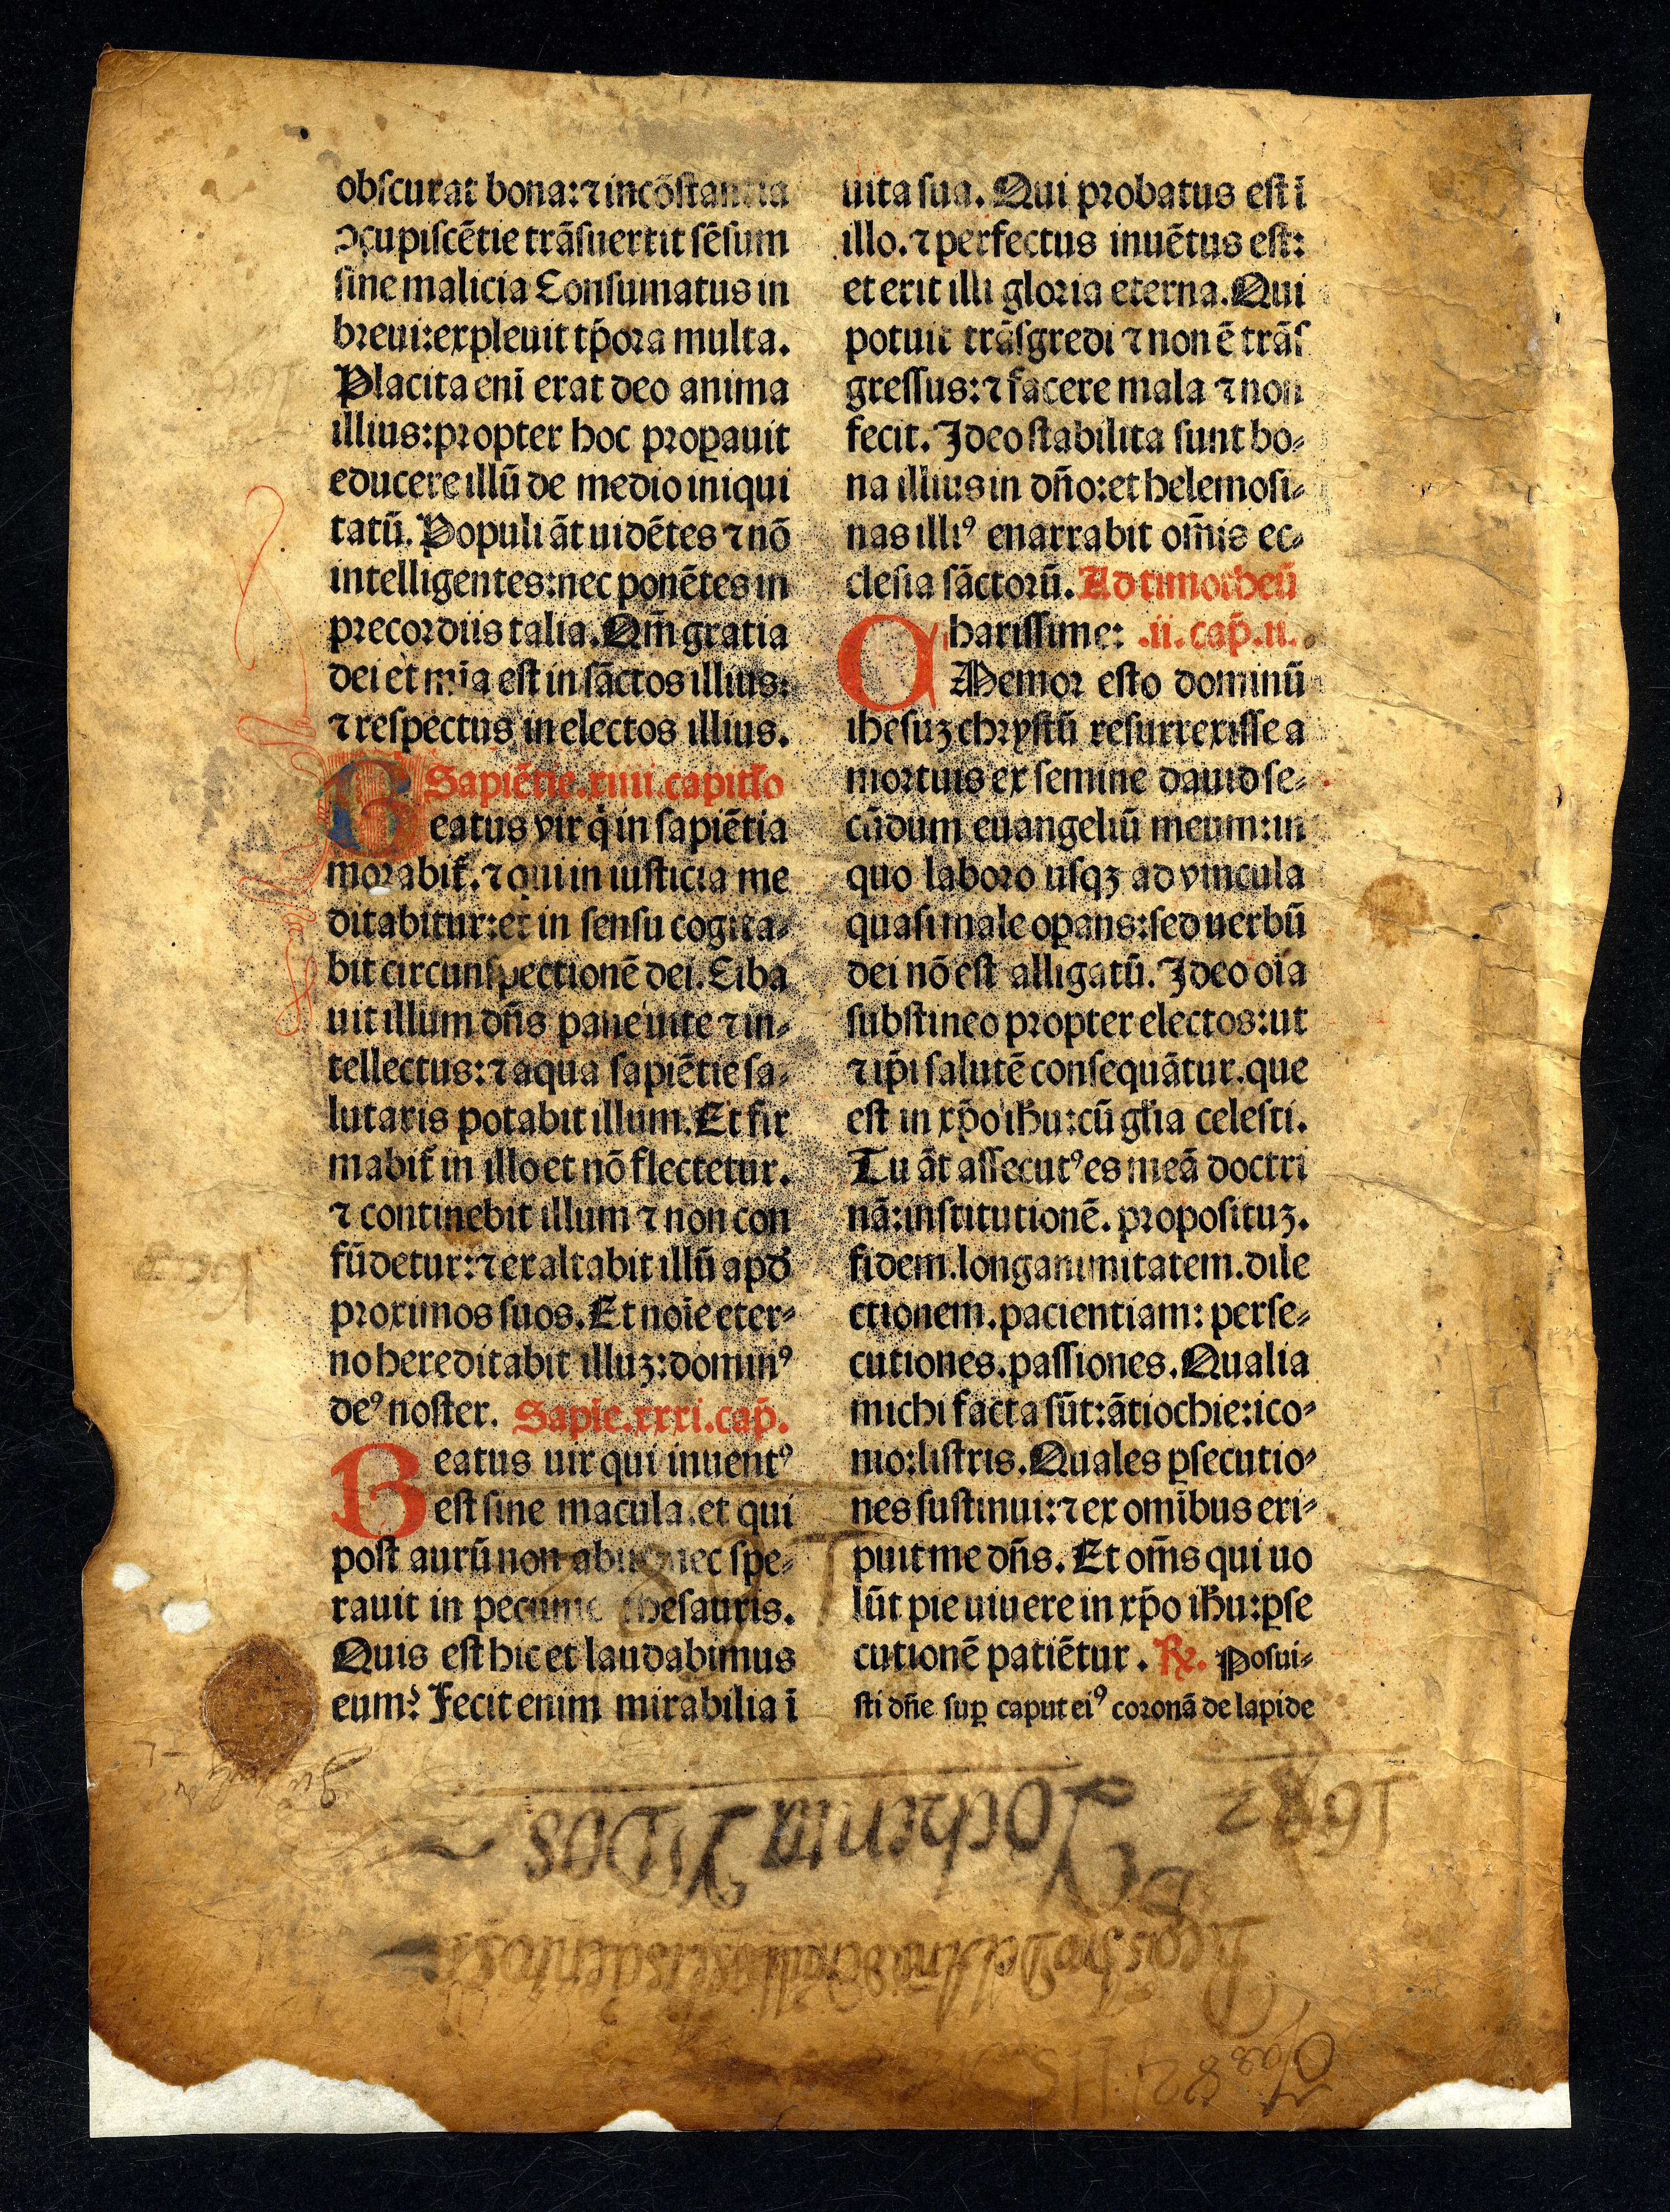 obscurat bona: ⁊ incõstantia
ↄcupiscẽtie trãsuertit sẽsum
sine malicia Consumatus in
breui: expleuit tp̃ora multa.
Placita eni erat deo anima
illius: propter hoc proꝑauit
educere illũ de medio iniqui
tatũ. Populi ãt uidẽtes ⁊ nõ
intelligentes: nec ponẽtes in
precordiis talia. Qm̃ gratia
dei et mĩa est in sãctos illius:
⁊ respectus in electos illius.
Sapiẽtie. xiiii. capitlo
Beatus vir q̇ in sapiẽtia
morabit̃. ⁊ qui in iusticia me
ditabitur: et in sensu cogita⸗
bit circunspectionẽ dei. Ciba
uit illum dñs pane uite ⁊ in⸗
tellectus: ⁊ aqua sapiẽtie sa⸗
lutaris potabit illum. Et fir
mabit̃ in illo et nõ flectetur.
⁊ continebit illum ⁊ non con
fũdetur: ⁊ exaltabit illũ apd̃
proximos suos. Et noĩe eter⸗
no hereditabit illuꝫ: dominꝰ
deꝰ noster. Sapie. xxxi. cap̃.
Beatus uir qui inuentꝰ
est sine macula. et qui
post aurũ non abiit nec spe⸗
rauit in pecunie thesauris.
Quis est hic et laudabimus
eum? Fecit enim mirabilia ĩ
uita sua. Qui probatus est ĩ
illo. ⁊ perfectus inuẽtus est:
et erit illi gloria eterna. Qui
potuit trãsgredi ⁊ non ẽ trãs
gressus: ⁊ facere mala ⁊ non
fecit. Ideo stabilita sunt bo⸗
na illius in dño: et helemosi⸗
nas illiꝰ enarrabit om̃is ec⸗
clesia sãctorũ. Ad timotheũ
Charissime: .ii. cap̃. ii.
Memor esto dominũ
ihesuꝫ chrystũ resurrexisse a
mortuis ex semine dauid se⸗
cũdum euangeliũ meum: in
quo laboro usqꝫ ad vincula
quasi male oꝑans: sed uerbũ
dei nõ est alligatũ. Ideo oĩa
substineo propter electos: ut
⁊ ip̃i salutẽ consequãtur. que
est in xp̃o ihu: cũ gl̃ia celesti.
Tu ãt assecutꝰ es meã doctri
nã: institutionẽ. proposituꝫ.
fidem. longanimitatem. dile
ctionem. pacientiam: perse⸗
cutiones. passiones. Qualia
michi facta sũt: ãtiochie: ico⸗
nio: listris. Quales ꝑsecutio⸗
nes sustinui: ⁊ ex omĩbus eri⸗
puit me dñs. Et om̃s qui uo
lũt pie uiuere in xp̃o ihu: ꝑse
cutionẽ patiẽtur. ℟. Posui⸗
sti dñe suꝑ caput eiꝰ coronã de lapide
1682
De
Yochenta Y Dos